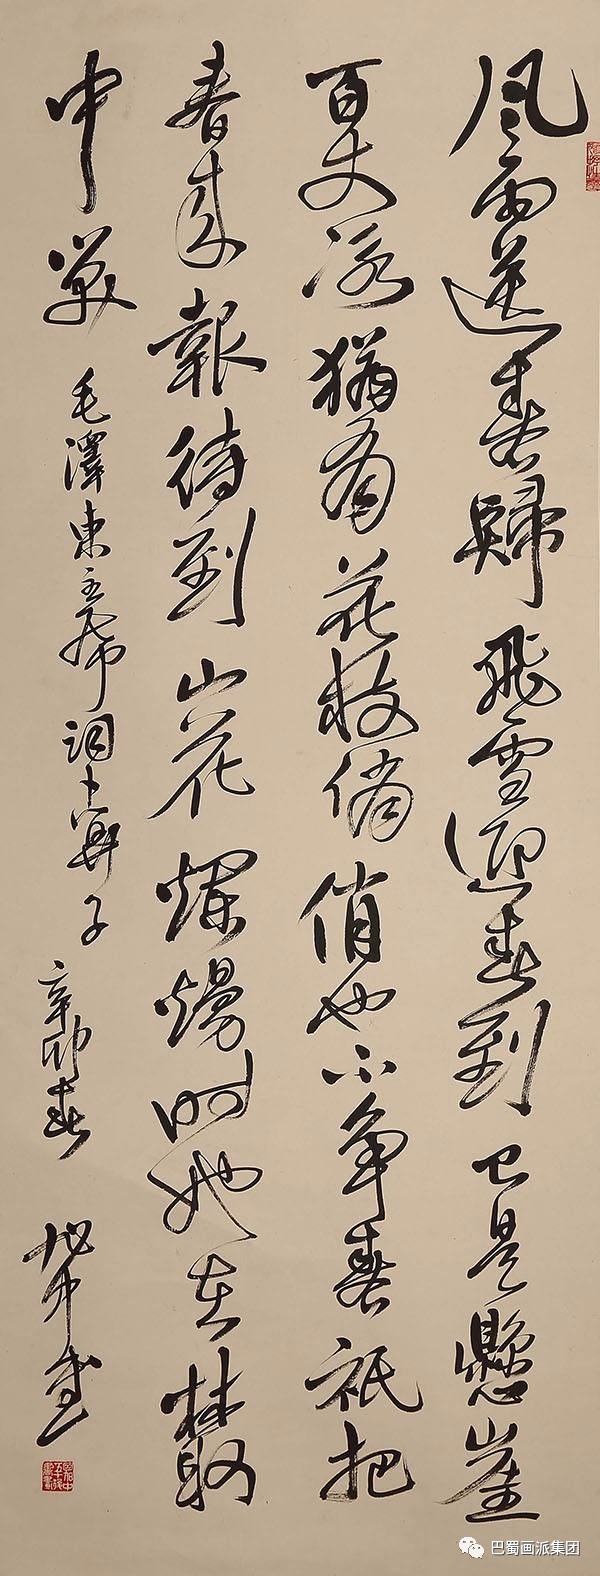 风雨送春歸飛雪迎春到已是懸崖
百丈冰猶有花枝俏俏也不争春衹把
春來報待到山花爛熳時她在叢
中笑 毛澤東主席詞卜算子 辛卯春 書
巴蜀画派集团